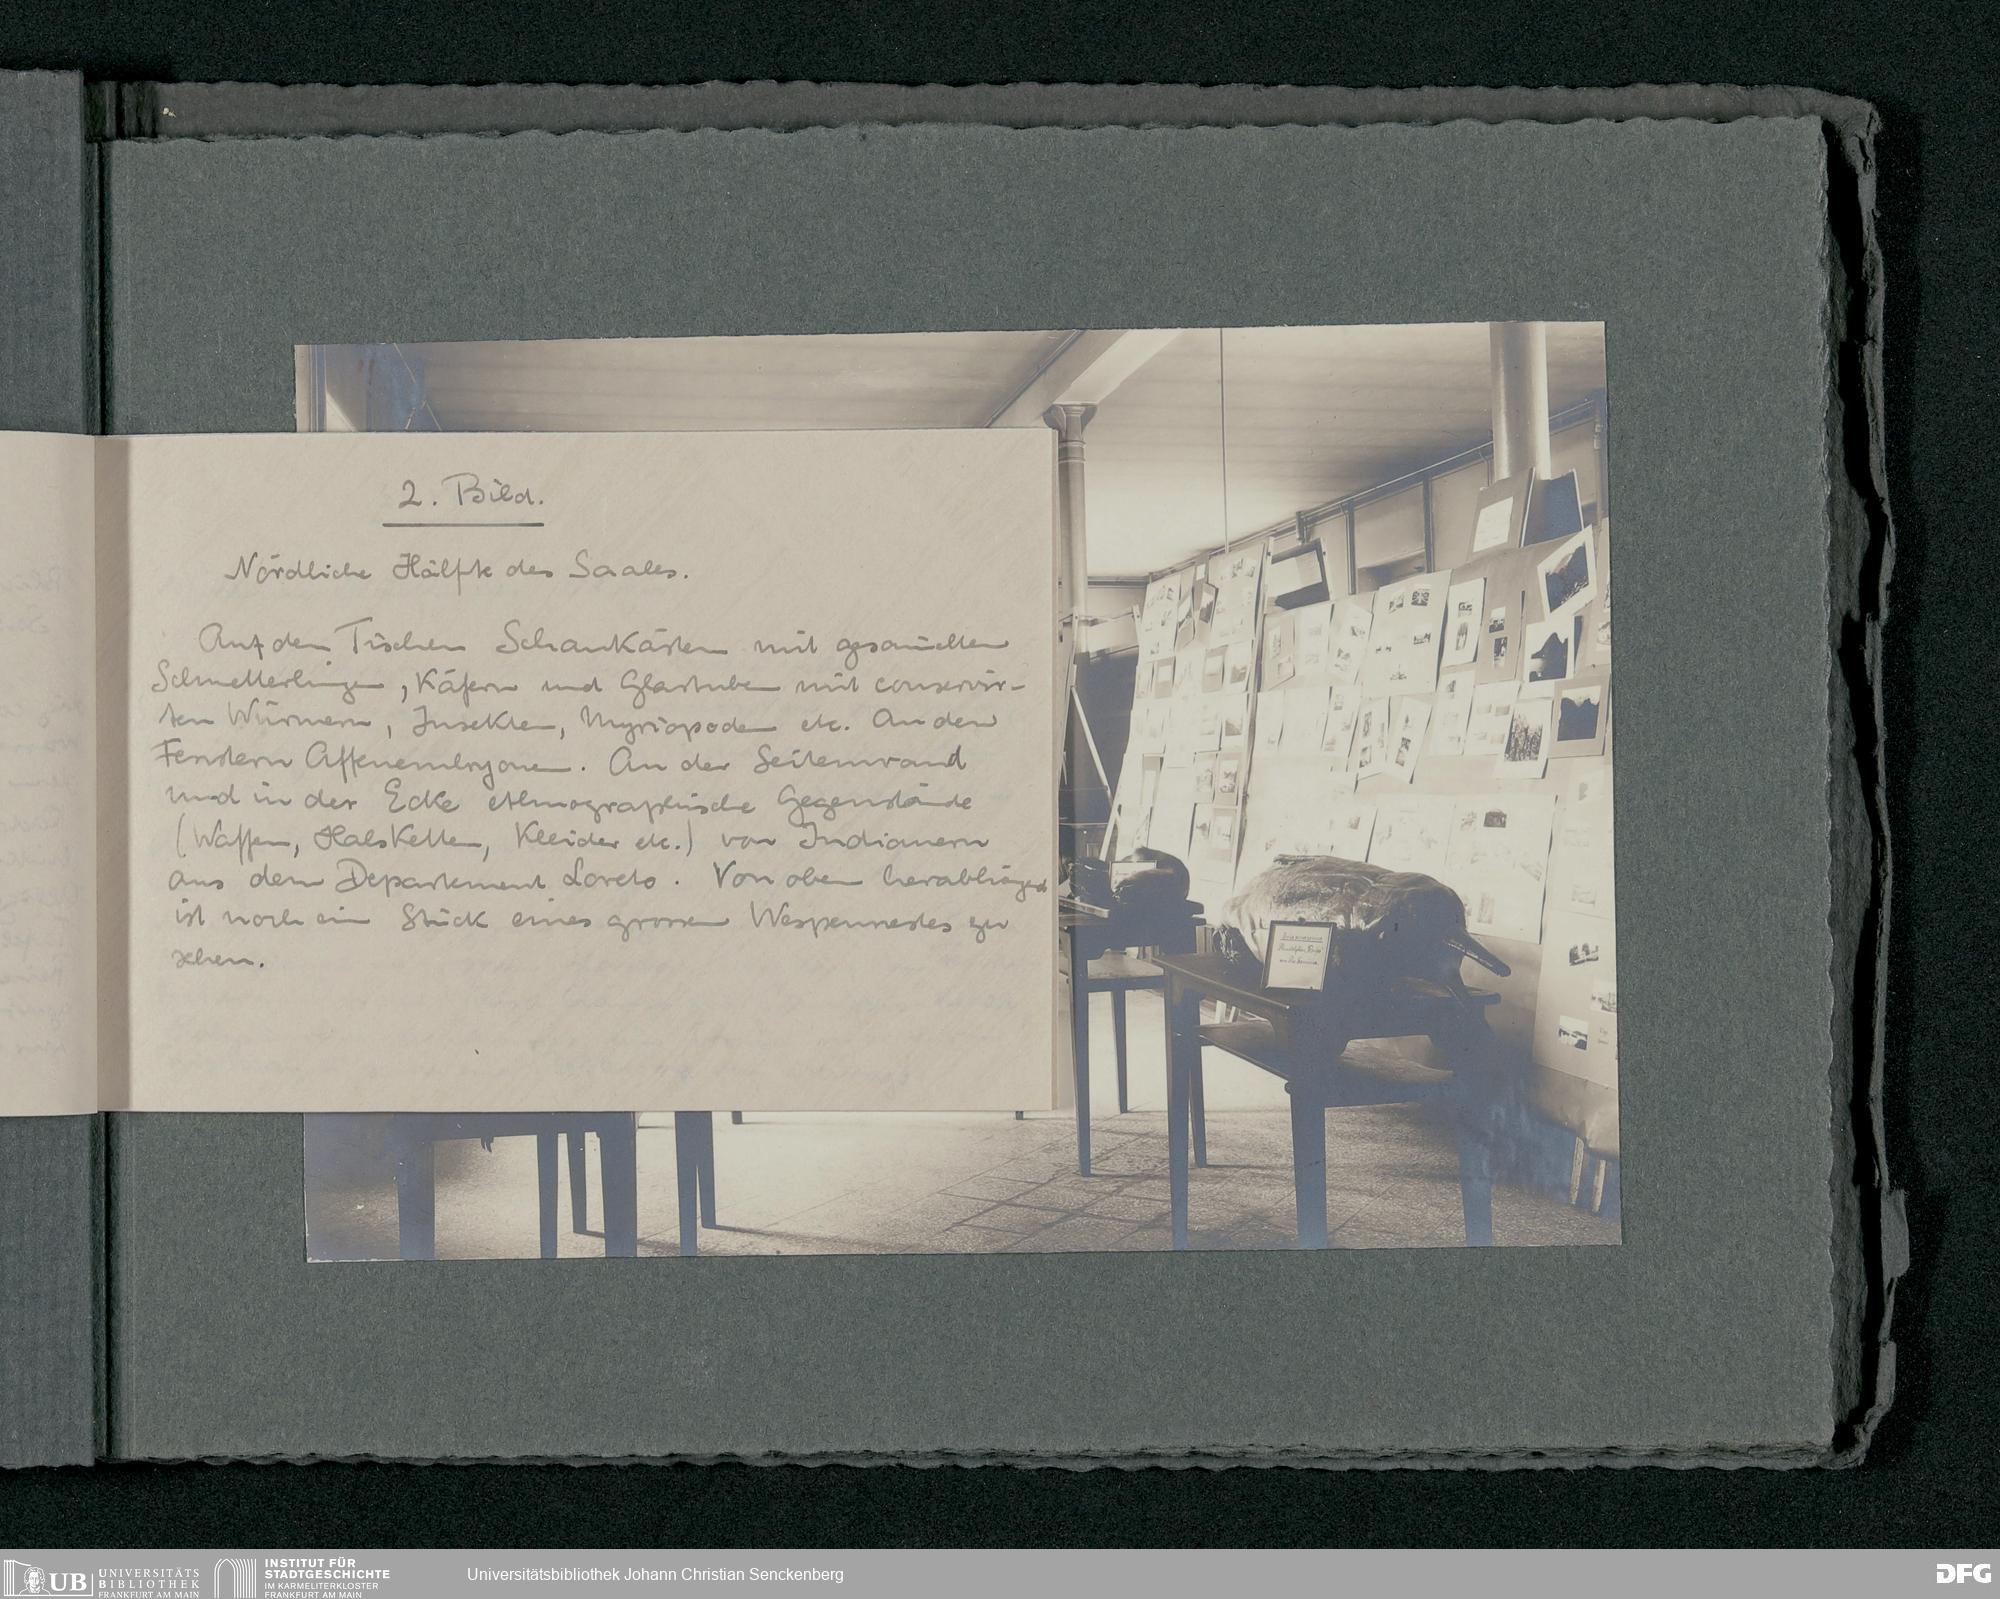 2. Bild.
Nördliche Hälfte des Saales.
Auf den Tischen Schaukästen mit gesam̅elten
Schmetterlingen, Käfern und Glastuben mit conservir-
ten Würmern, Insekten, Myriopoden etc. An den
Fenstern Affenembryonen. An der Seitenwand
und in der Ecke ethnographische Gegenstände
(Waffen, Halsketten, Kleider etc.) von Indianern
aus dem Departement Loreto. Von oben herabhängend
ist noch ein Stück eines grossen Wespennestes zu
sehen.
UB
UNIVERSITÄTS
BIBLIOTHEK
FRANKFURT AM MAIN
INSTITUT FÜR
STADTGESCHICHTE
IM KARMELITERKLOSTER
FRANKFURT AM MAIN
Universitätsbibliothek Johann Christian Senckenberg
DFG